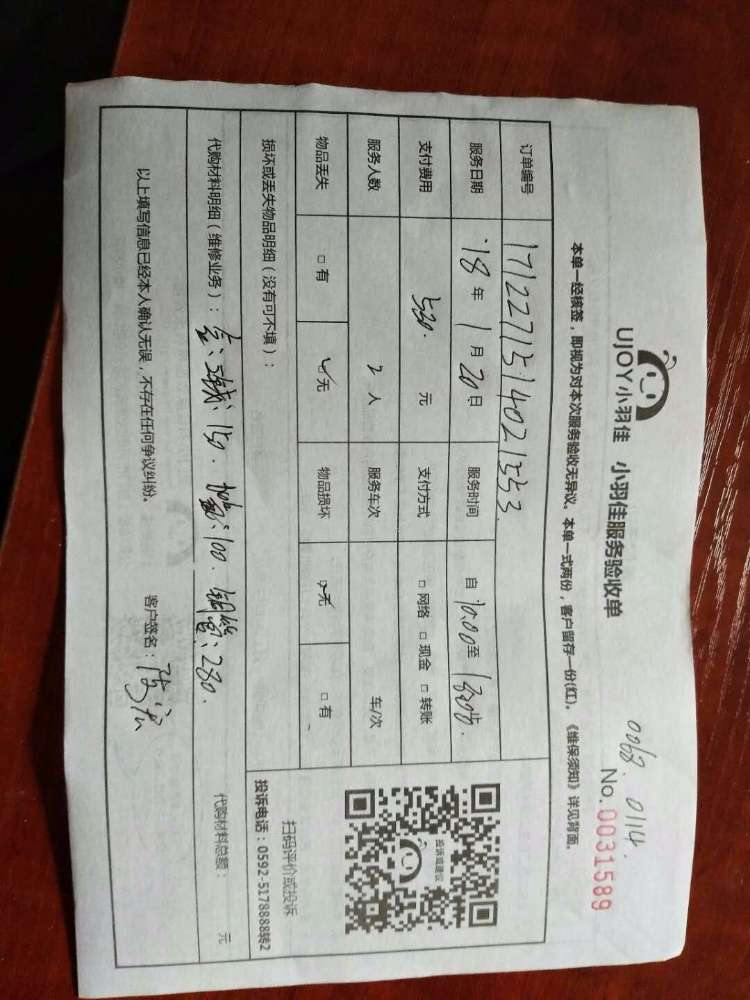 0068. 0114.
UJOY小羽佳 小羽佳服务验收单
No. 0031589
本单一经核签，即视为对本次服务验收无异议。本单一式两份，客户留存一份(红)。《维保须知》详见背面。
订单编号 1712271514021553.
服务日期 18年 1月 20日 服务时间 自 10:00至
支付费用 530. 元 支付方式 □网络 □现金 □转账
服务人数 2 人 服务车次 车/次
物品丢失 □有 ☑无 物品损坏 ☑无 □有
损坏或丢失物品明细（没有可不填）：
投诉或建议
扫码评价或投诉
投诉电话：0592-5178888转2
代购材料明细（维修业务）： 150. 100. 铜管: 280.
代购材料总额： 元
以上填写信息已经本人确认无误，不存在任何争议纠纷。 客户签名：